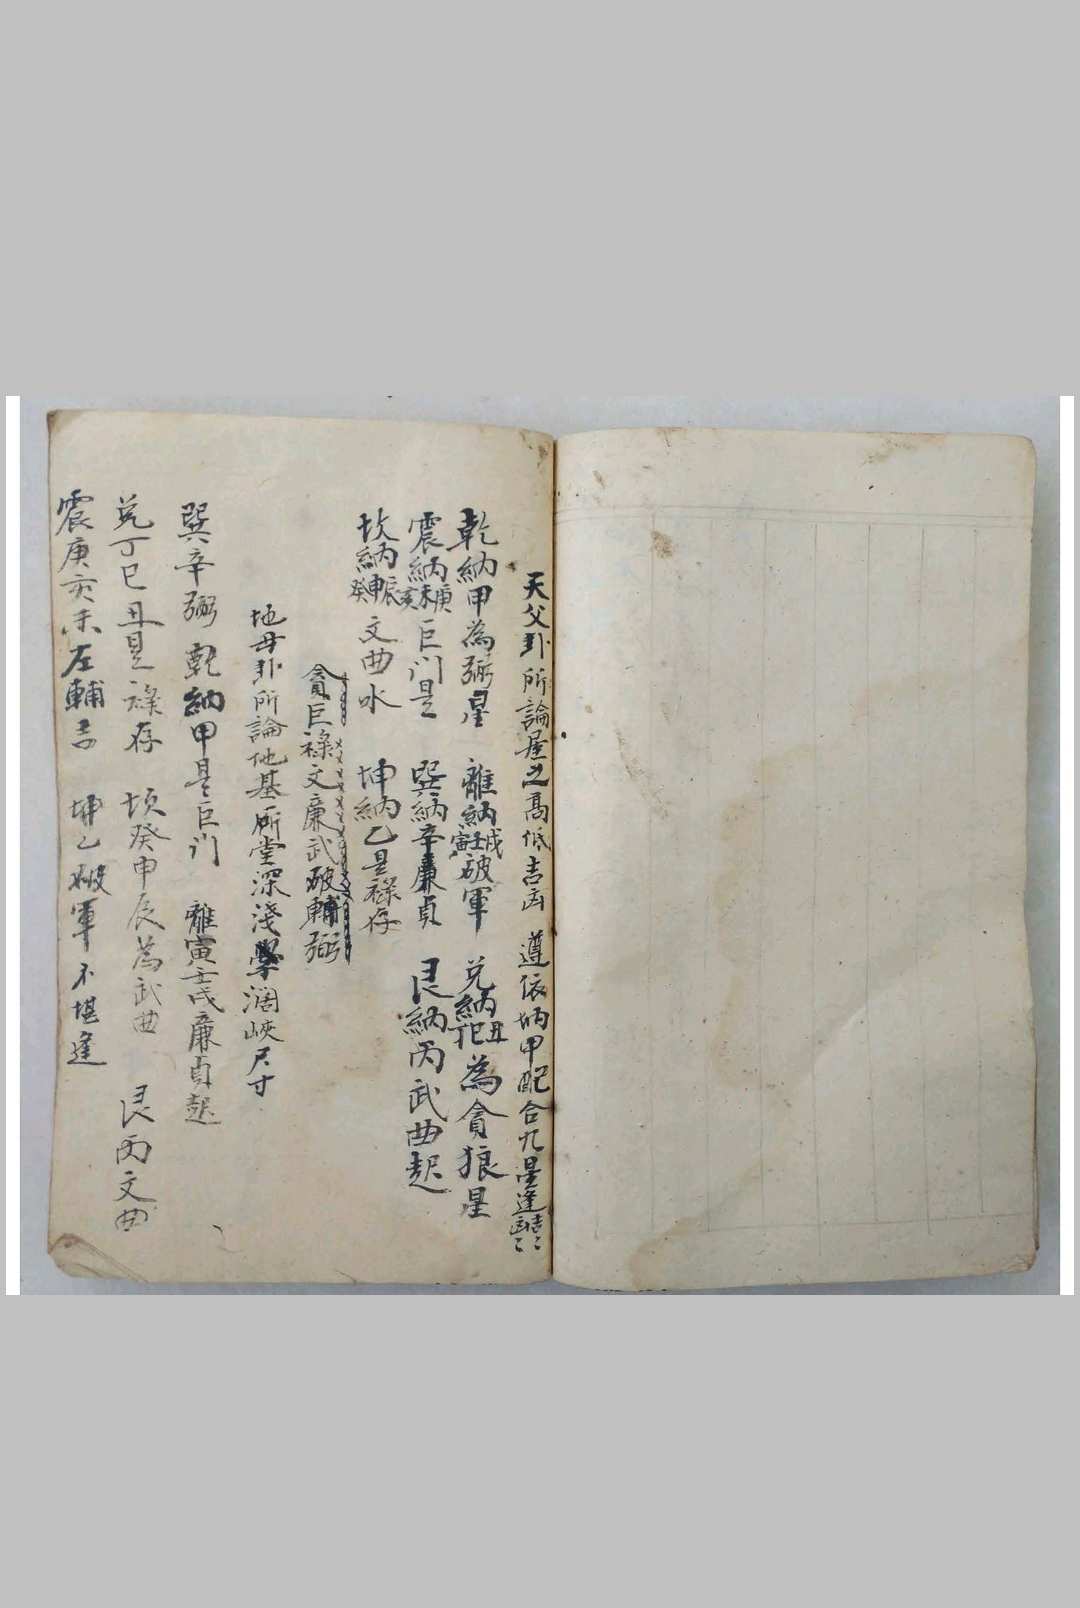 天父卦所論屋之高低吉凶 遵依坊甲配合九星逢吉〻凶〻
乾納甲為弼星 離納壬寅戌破軍 兌納丁巳丑為貪狼星
震納庚亥未巨门是 巽納辛廉貞 艮納丙武曲起
坎納癸申辰文曲水 坤納乙是祿存
貪巨祿文廉武破輔弼
地母卦所論地基所堂深淺學濶峽尺寸
巽辛弼 乾納甲是巨门 離寅壬戌廉貞起
兌丁巳丑是祿存 坎癸申辰為武曲 艮丙文曲
震庚亥未左輔吉 坤乙破軍不堪逢